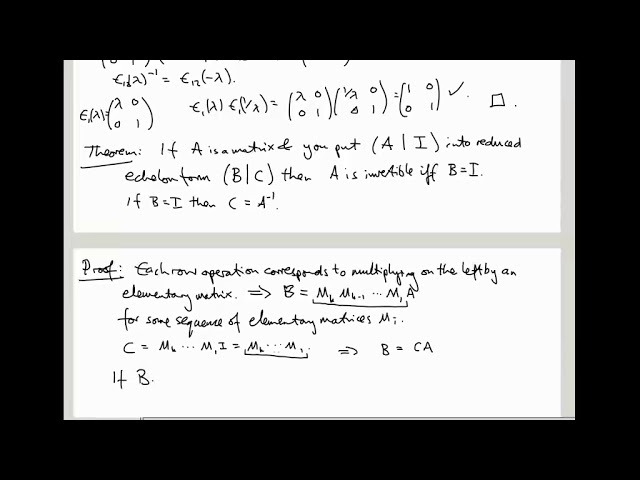 ε₁₂(λ)⁻¹ = ε₁₂(-λ).
ε₁(λ) = (λ 0
0 1) ε₁(λ) ε₁(1/λ) = (λ 0
0 1)(1/λ 0
0 1) = (1 0
0 1) ✓ □.
Theorem: If A is a matrix & you put (A | I) into reduced
echelon form (B | C) then A is invertible iff B = I.
If B = I then C = A⁻¹.
Proof: Each row operation corresponds to multiplying on the left by an
elementary matrix. ⟹ B = Mₖ Mₖ₋₁ ⋯ M₁ A
for some sequence of elementary matrices Mᵢ.
C = Mₖ ⋯ M₁ I = Mₖ ⋯ M₁. ⟹ B = CA
If B.